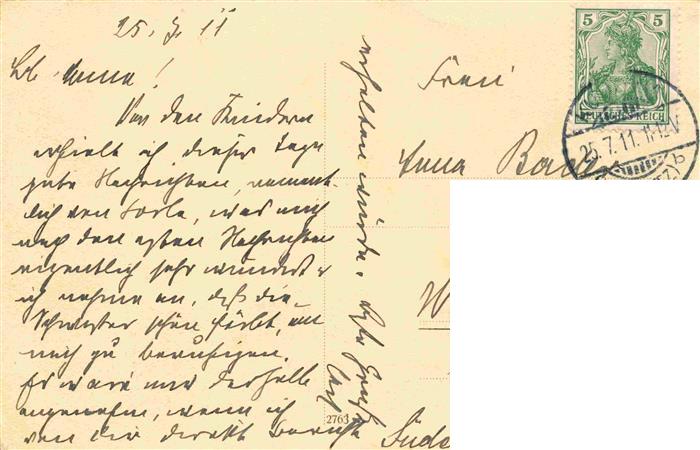 25. 7. 11
Lb. Anna!
Von den Kindern
erhielt ich dieser Tage
gute Nachrichten, nament-
lich von, was mich
nach den ersten Nachrichten
eigentlich sehr wundert &
ich nehme an, daß die
Schwester schön färbt, um
mich zu beruhigen.
Es wäre mir deshalb
angenehm, wenn ich
von dir direkt Berichte
erhalten würde. Gruß
Frau
Anna
W
Süd
5 5
DEUTSCHES REICH
25.7.11.11-12V
2763